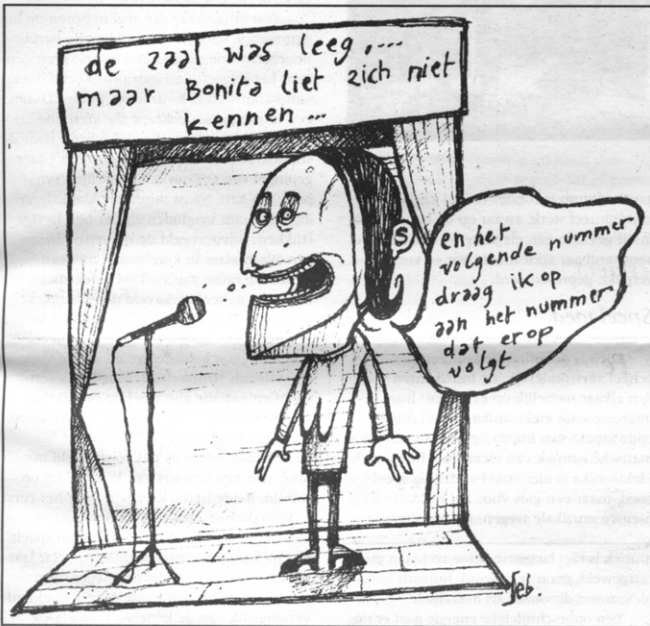 de zaal was leeg,....
maar Bonita liet zich niet
kennen...
S
en het
volgende nummer
draag ik op
aan het nummer
dat erop
volgt
Seb